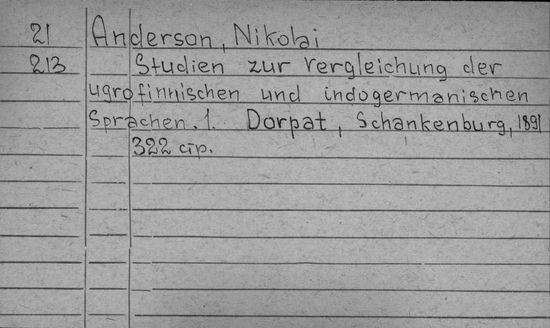 21 Anderson, Nikolai
213 Studien zur vergleichung der
ugrofinnischen und indogermanischen
Sprachen. 1. Dorpat, Schankenburg, 1891
322 стр.